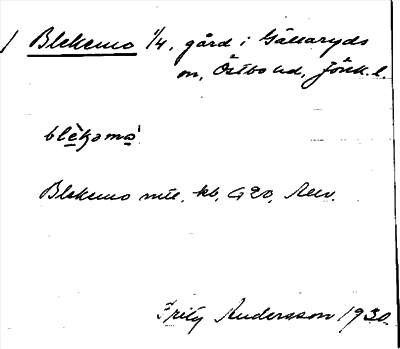 / Blekemo 1/4, gård i Gällaryds
sn, Östbo hd, Jönk. l.
Blekemo mtl, kb, G 20,
Fritz Andersson 1930.